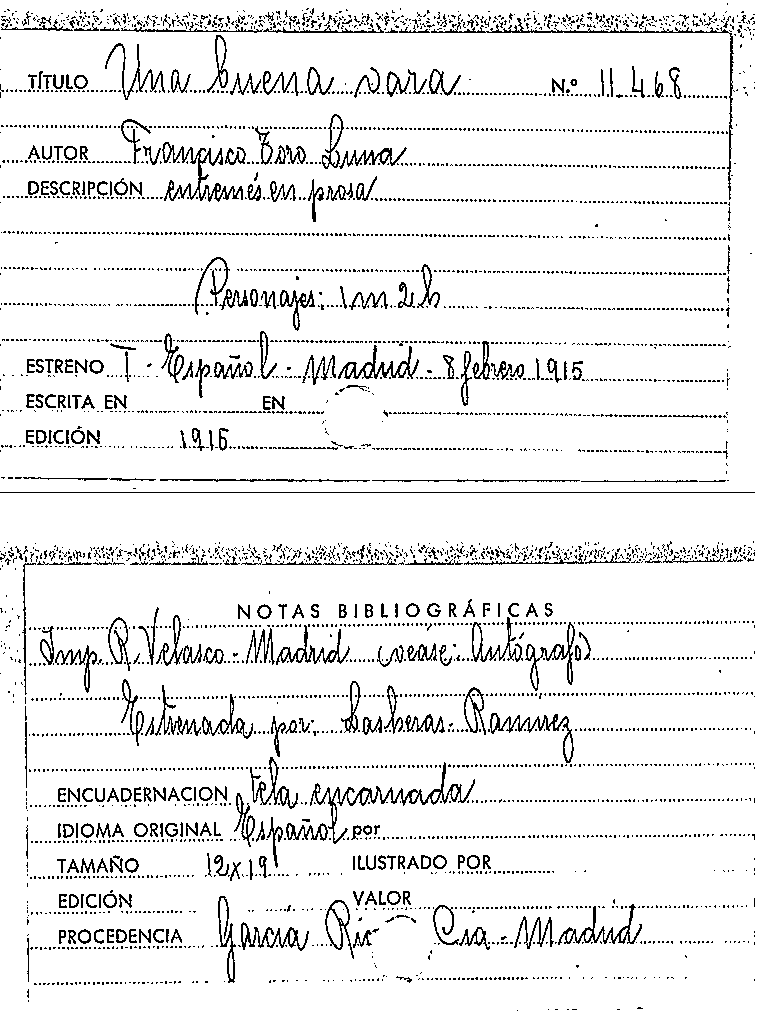 TÍTULO Una buena vara N.º 11.468
AUTOR Francisco Toro Luna
DESCRIPCIÓN entremés en prosa
Personajes: 1 m 2 h
ESTRENO T - Español - Madrid - 8 febrero 1915
ESCRITA EN EN
EDICIÓN 1915
NOTAS BIBLIOGRÁFICAS
Imp. R. Velasco - Madrid (vease: Autógrafo)
Estrenada por: Lasheras - Ramirez
ENCUADERNACION tela encarnada
IDIOMA ORIGINAL Español por
TAMAÑO 12x19 ILUSTRADO POR
EDICIÓN VALOR
PROCEDENCIA García Ric Cia - Madrid